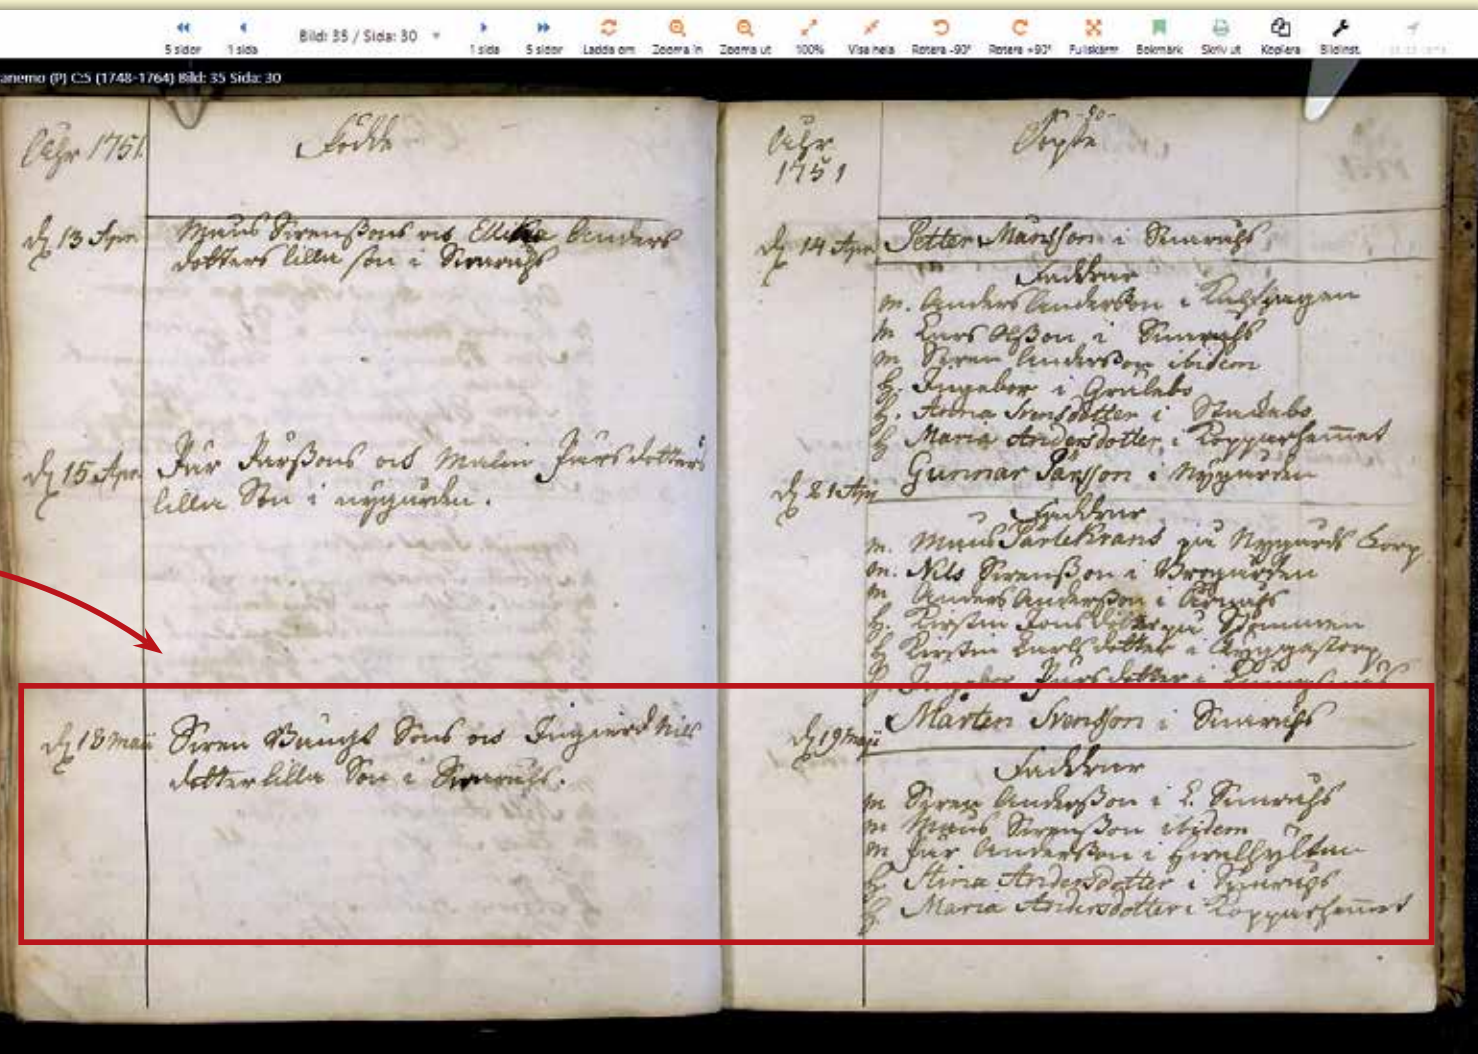 5 sidor 1 sida Bild: 35 / Sida: 30 1 sida 5 sidor Ladda om Zooma in Zooma ut 100% Visa hela Rotera -90° Rotera +90° Fullskärm Bokmärk Skriv ut Kopiera Bildinst.
anemo (P) C:5 (1748-1764) Bild: 35 Sida: 30
Åhr 1751. Födde
dn 13 Apr. Måns Svenßons och Ellika Anders
dotters lilla son i Simaryhs
dn 15 Apr. Pär Larßons och Malin Pärsdotters
lilla Son i nygården.
dn 18 Maii Sven Bängt Sons och Ingierd Nils
dotter lilla Son i Simaryhs.
-30-
Åhr Döpte
1751
dn 14 Apr. Petter Månsson i Simaryhs
Faddrar
m. Anders Anderßon i
m Lars Olßon i Simaryhs
m Sven Anderßon ibidem
h. Ingebor i Grålebo
h. Anna Svensdotter i
h Maria Andersdotter i Kopparhemmet
dn 21 Apr Gunnar Pärsson i Nygården
Faddrar
m. Måns på Nygårds torp
m. Nils Svenßon i
m Anders Anderßon i
h. Kirstin Jonsdotter på
h Kirstin Larlsdotter i
h. Ingebor Pärsdotter i
dn 19 Maji Mårten Svensson i Simaryhs
Faddrar
m Sven Anderßon i L. Simaryhs
m Måns Svenßon ibidem
m Pär Anderßon i
h Stina Andersdotter i Simaryhs
h Maria Andersdotter i Kopparhemmet